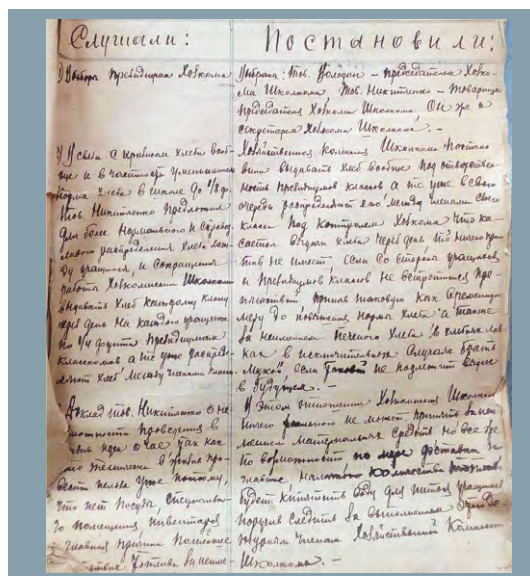 Слушали:
1) Выборы Президиума Хозкома
2) В связи с кризисом хлеба вооб-
ще и в частности уменьшением
норма хлеба в школе до 1/8 ф.
тов. Никитченко предложил
для более нормального и справед-
ливого распределения хлеба меж-
ду учащимся, и сокращения
работы Хозкомиссии Школкома
выдавать хлеб каждому классу
через день на каждого учащегося
по 1/4 фунта Президиумам
классных а те уже распреде-
ляют хлеб между членами класса
Доклад тов. Никитченко о не
возможности проведения в
жизнь идеи о чае так как
это
вести нельзя уже потому,
что нет посуды, специально-
го помещения инвентаря
главная причина полнейшее
отсутствие топлива
Постановили:
Избрать: Тов. – председателем Хозко-
ма Школкома Тов. Никитченко – товарищ
председателя Хозкома Школкома, Он же и
секретарь Хозкома Школкома. –
Хозяйственная комиссия Школкома постано
вила выдавать хлеб вообще под ответствен-
ность Президиумов классов а те уже в свою
очередь распределяют его между членами своего
класса под контролем Хозкома Что ка-
сается выдачи хлеба через день то ничего про-
тив не имеет если со стороны учащихся
и Президиумов классов не встретится пре-
пятствий приняв таковую как временную
меру до повышения нормы хлеба а также
за неимением печеного хлеба в
как в исключительных случаях брать
мукой, если таковой не
в будущем. –
В этом отношении Хозкомиссия Школкома
ничего реального не может принять за неи-
мением материальных средств но все же
по возможности по мере доставки и
главное, количества топлива
будет кипятить воду для питья учащихся
поручив следить за выполнением Де-
журным членам Хозяйственной Комиссии
Школкома. –